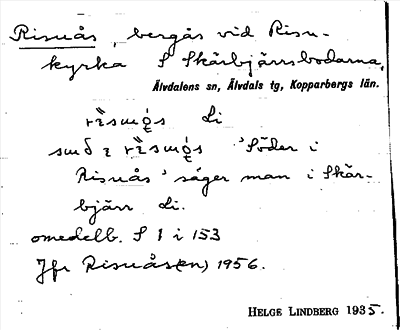 Risnås, bergås vid Risn-
kyrka S Skärbjärsbodarna,
Älvdalens sn, Älvdals tg, Kopparbergs län.
Li
'Söder i
Risnås' säger man i Skär-
bjärr Li.
omedelb. S 1 i 153
Jfr Risnås(en) 1956.
HELGE LINDBERG 1935.